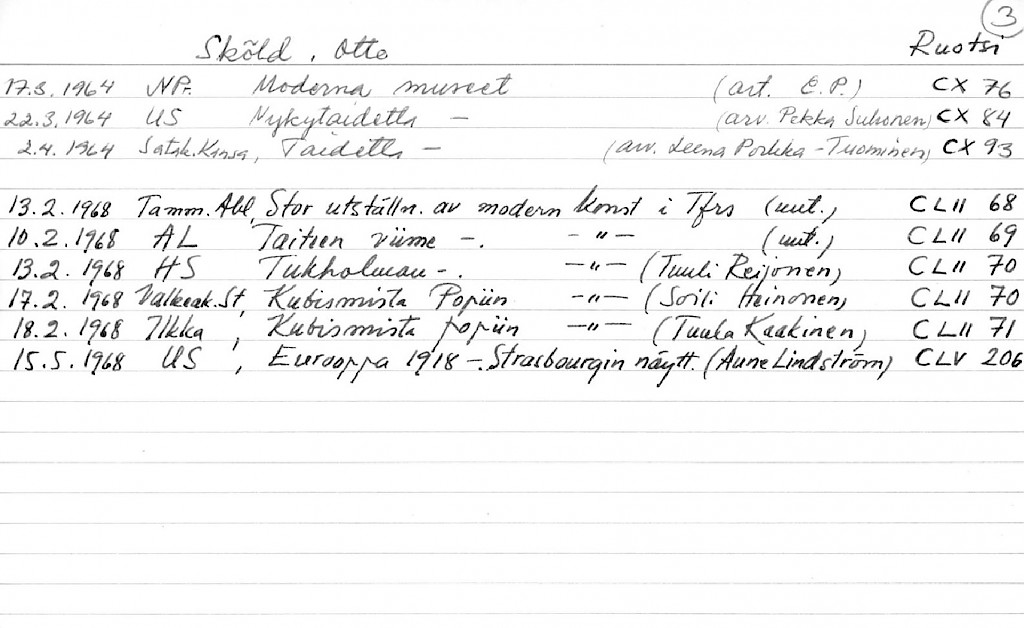 3
Sköld, Otto Ruotsi
17.3.1964 NPr. Moderna museet (art. E.P.) CX 76
22.3.1964 US Nykytaidetta — (arv. Pekka Suhonen) CX 84
2.4.1964 Satak.Kansa, Taidetta — (arv. Leena Porkka-Tuominen) CX 93
13.2.1968 Tamm.Abl, Stor utställn. av modern konst i Tfrs (uut.) CLII 68
10.2.1968 AL Taiteen viime —. —"— (uut.) CLII 69
13.2.1968 HS Tukholman —. —"— (Tuuli Reijonen) CLII 70
17.2.1968 Valkeak.St, Kubismista Popiin —"— (Soili Heinonen) CLII 70
18.2.1968 Ilkka, Kubismista popiin —"— (Tuula Kaakinen) CLII 71
15.5.1968 US, Eurooppa 1918 —. Strasbourgin näytt. (Aune Lindström) CLV 206